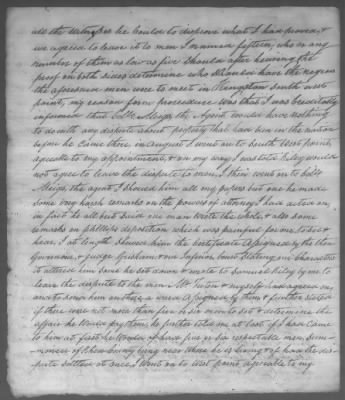 all the witnesses he could to disprove what I had proved, &
we agreed to leave it to men I named fifteen, who or any
number of them as low as five should after hearing the
proof on both sides determine who should have the negroes
the aforesaid men were to meet in Kingston South west
point, my reason for proceedure was that I was creditably
informed that Colo. Meigs the Agent would have nothing
to do with any dispute about property that had been in the nation
before he came there in August I went on to South West point
agreeable to my appointment, & on my way I was told Riley would
not agree to leave the dispute to men. I then went on to Colo.
Meigs the agent I showed him all my papers but one he made
some very harsh remarks on the powers of attorney I had acted on,
in fact he all but said one man wrote the whole, & also some
remarks on Phillips deposition which was painful for me to bear &
hear, I at length showed him the Certificate assigned by the Hon
Governor, & judge Grisham & our Inferior Court stating our characters
it altered him some he set down & wrote to Samuel Riley by me to
leave the dispute to the men Mr. & myself had agreed on,
and to send him in there a word assigned by them & further stated
if there were not more than five or six men to set & determine the
affair he would pay them, he further told me at last if I had came
to him at first he would of had five or six respectable men, Sum-
moned of there County living near where he is living & of had the dis-
pute settled at once, I went on to West point agreeable to my